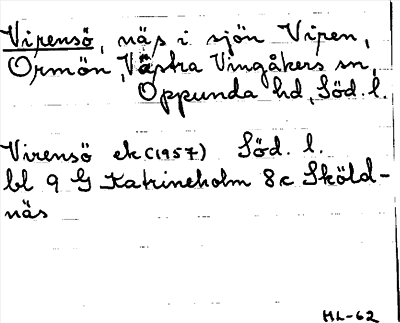 Virensö, näs i sjön Viren,
Ormön, Västra Vingåkers sn,
Oppunda hd, Söd. l.
Virensö ek (1957) Söd. l.
bl 9 G Katrineholm 8c Sköld-
näs
HL-62